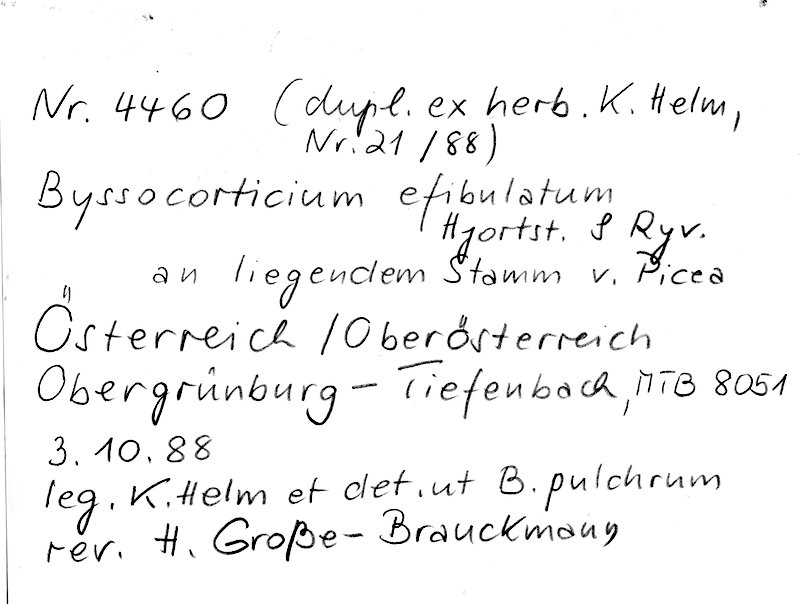 Nr. 4460 (dupl. ex herb. K. Helm,
Nr. 21/88)
Byssocorticium efibulatum
Hjortst. & Ryv.
an liegendem Stamm v. Picea
Österreich / Oberösterreich
Obergrünburg - Tiefenbach, MTB 8051
3. 10. 88
leg. K. Helm et det. ut B. pulchrum
rev. H. Große-Brauckmann